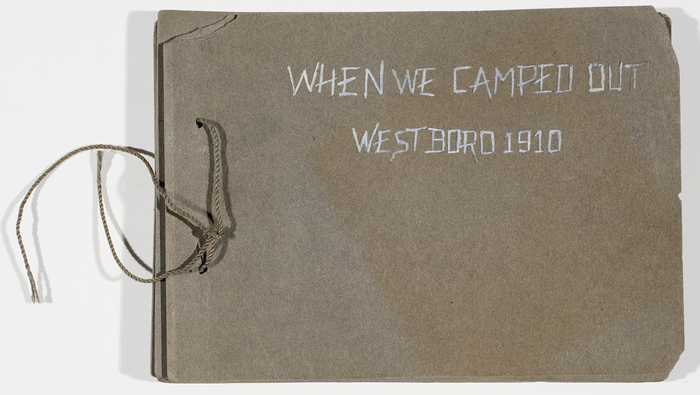 WHEN WE CAMPED OUT
WESTBORO 1910